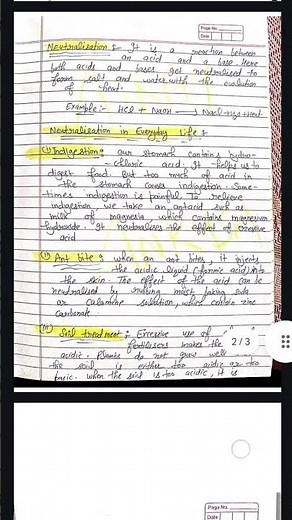 Page No.
Date
Neutralisation :- It is a reaction between
an acid and a base. Here
both acids and bases get neutralised to
form salt and water with the evolution
of heat.
Example :- HCl + NaOH → NaCl + H2O + Heat
Neutralisation in Everyday life :
(i) Indigestion : our stomach contains hydro-
- chloric acid. It helps us to
digest food. But too much of acid in
the stomach causes indigestion. Some-
times indigestion is painful. To relieve
indigestion, we take an antacid such as
milk of magnesia which contains magnesium
hydroxide. It neutralises the effect of excessive
acid
Ant bite : when an ant bites, it injects
the acidic liquid (formic acid) into
the skin. The effect of the acid can be
neutralised by rubbing moist baking soda
or Calamine solution, which contain zinc
carbonate.
(iii) Soil treatment : Excessive use of
fertilisers makes the
acidic. Plants do not grow well
the soil is either too acidic or too
basic. when the soil is too acidic, it is
2/3
Page No.
Date